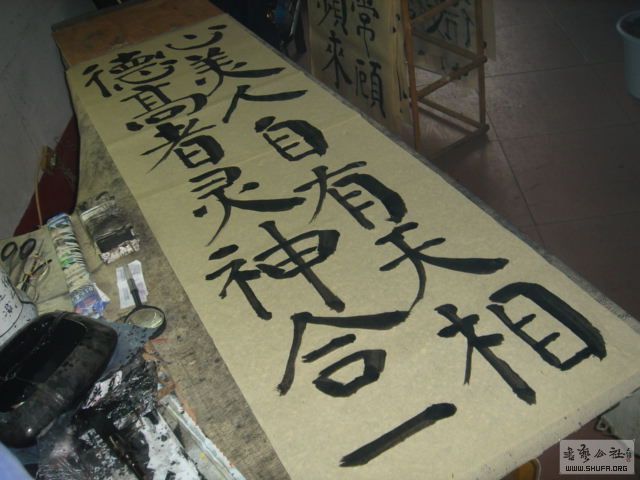 心美人自有天相
德高者灵神合一
常顧
頻來
書藝公社
WWW.SHUFA.ORG